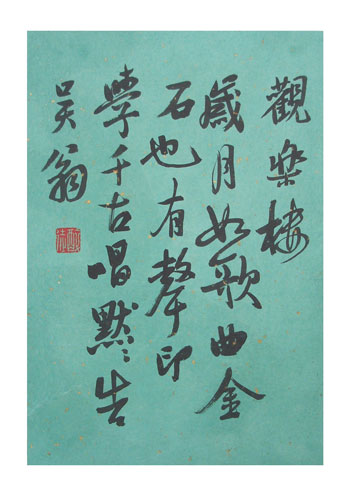 觀樂樓
歲月如歌曲金
石也有聲印
學千古唱默〻告
吴翁